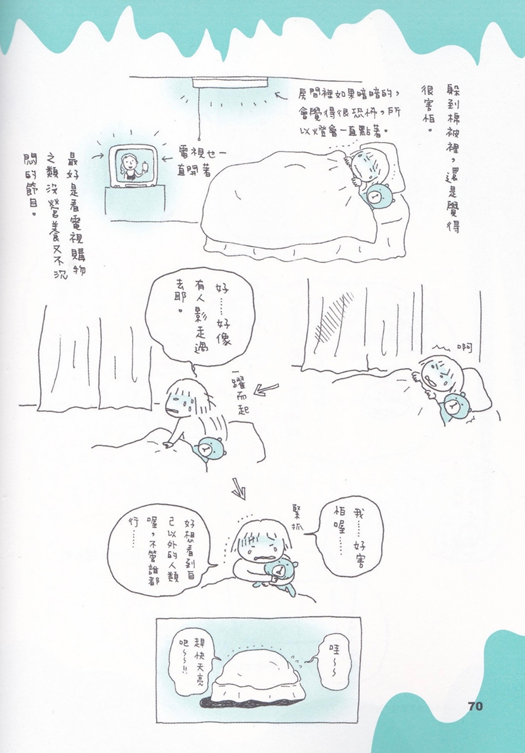 躲到棉被裡，還是覺得
很害怕。
房間裡如果暗暗的，
會覺得很恐怖，所
以燈會一直點著。
電視也一
直開著
最好是看電視購物
之類沒營養又不沉
悶的節目。
啊
好……好像
有人影走過
去耶。
一躍而起
我……好害
怕喔……
緊抓
好想看到自
己以外的人類
喔，不管誰都
行……
哇～～
趕快天亮
吧～～!!
70